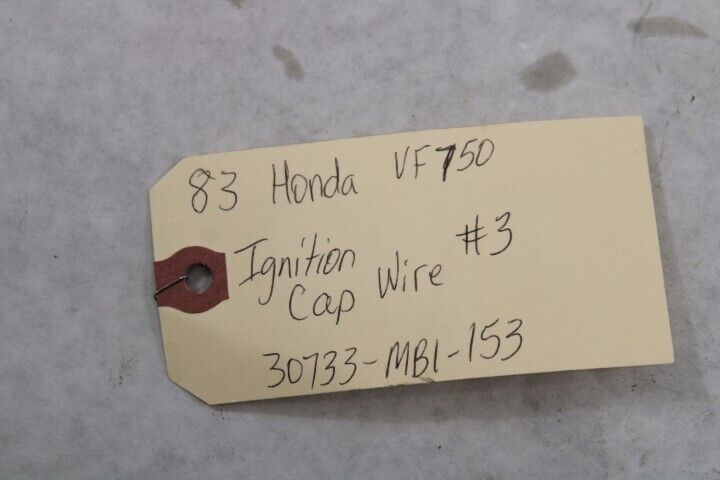 83 Honda VF750
Ignition #3
Cap Wire
30733-MB1-153